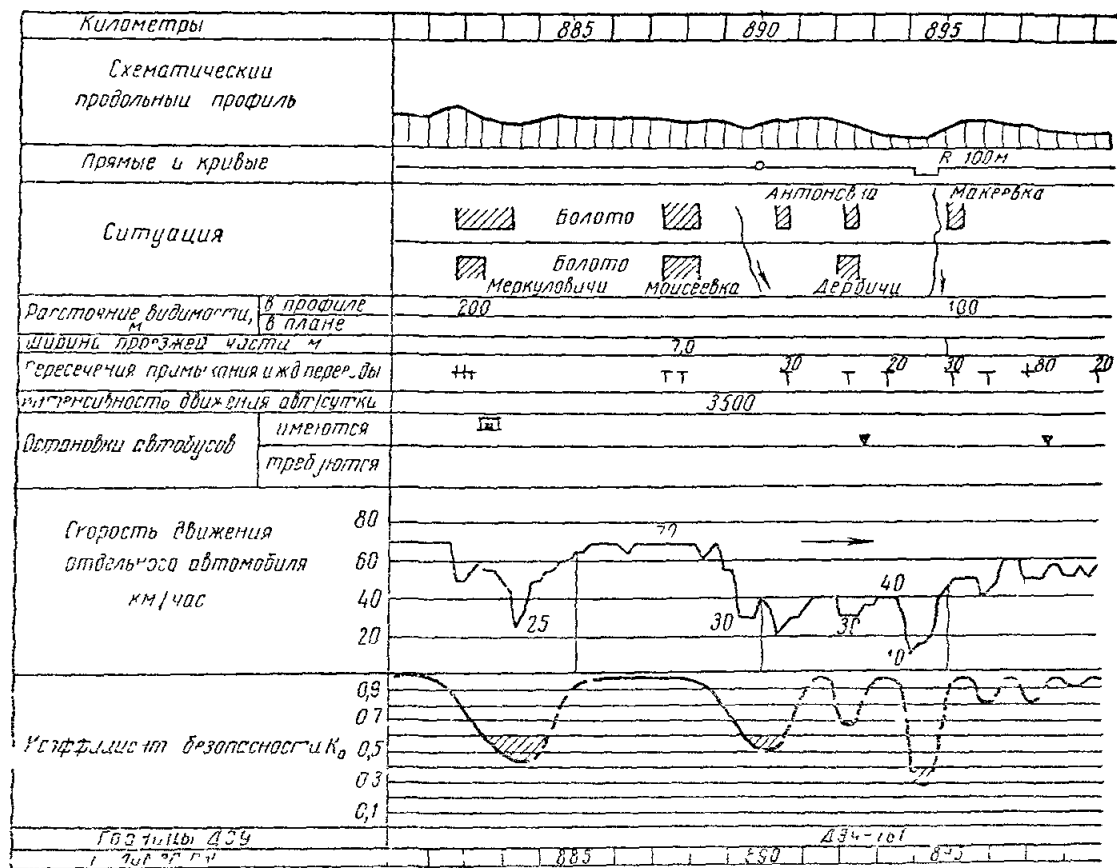 Километры 885 890 895
Схематический
продольный профиль
Прямые и кривые R 100м
Антоновка Макеевка
Болото
Ситуация
Болото
Меркуловичи Моисеевка Дербичи
Расстояние видимости, м
в профиле 200 100
в плане
Ширина проезжей части м 7,0
Пересечения примыкания и жд переезды 30 20 30 80 20
Интенсивность движения авт/сутки 3500
Остановки автобусов
имеются
требуются
Скорость движения
отдельного автомобиля
км/час
80
60
40
20
70
25 30 30 40 10
Коэффициент безопасности Kа
0,9
0,7
0,5
0,3
0,1
Границы ДЭУ
885 890 895